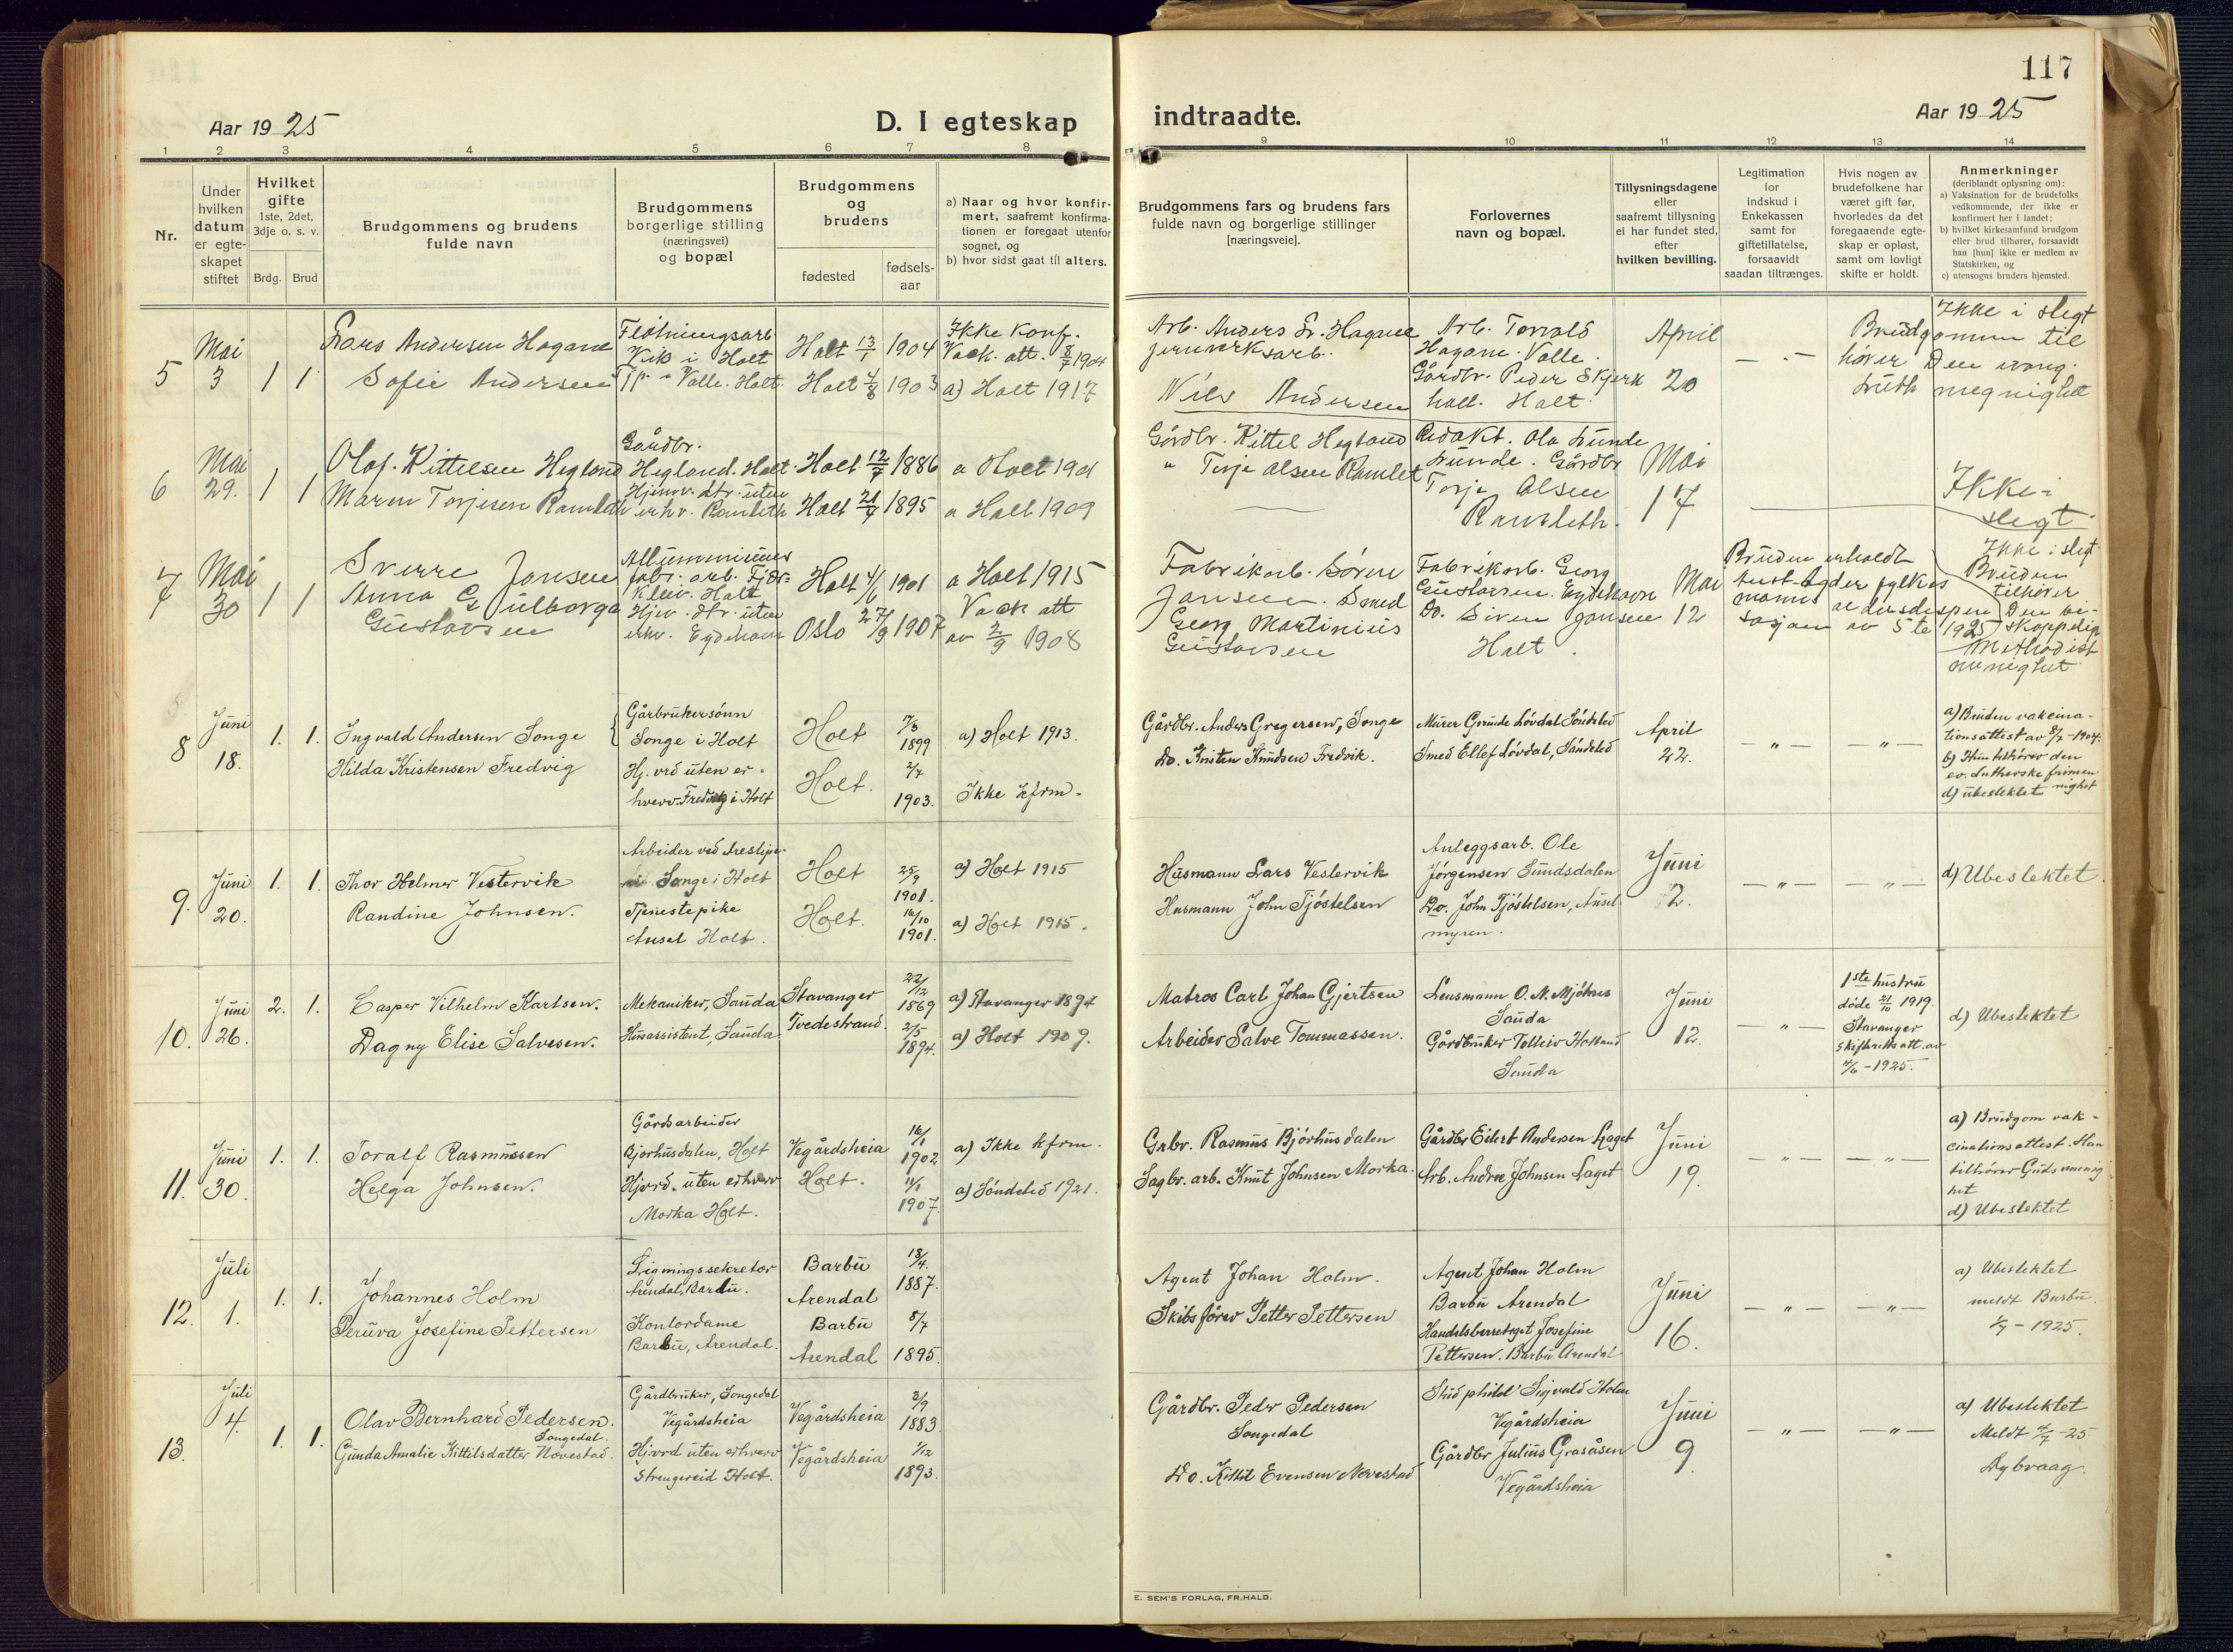 117
Aar 1925
D. I egteskap
indtraadte.
Aar 1925
1 2 3 4 5 6 7 8
9 10 11 12 13 14
Nr.
Under
hvilken
datum
er egte-
skapet
stiftet
Hvilket
gifte
1ste, 2det,
3dje o. s. v.
Brdg. Brud
Brudgommens og brudens
fulde navn
Brudgommens
borgerlige stilling
(næringsvei)
og bopæl
Brudgommens
og
brudens
fødested
fødsels-
aar
a) Naar og hvor konfir-
mert, saafremt konfirma-
tionen er foregaat utenfor
sognet, og
b) hvor sidst gaat til alters.
Brudgommens fars og brudens fars
fulde navn og borgerlige stillinger
[næringsveie].
Forlovernes
navn og bopæl.
Tillysningsdagene
eller
saafremt tillysning
ei har fundet sted,
efter
hvilken bevilling.
Legitimation
for
indskud i
Enkekassen
samt for
giftetillatelse,
forsaavidt
saadan tiltrænges.
Hvis nogen av
brudefolkene har
været gift før,
hvorledes da det
foregaaende egte-
skap er opløst,
samt om lovligt
skifte er holdt.
Anmerkninger
(deriblandt oplysning om):
a) Vaksination for de brudefolks
vedkommende, der ikke er
konfirmert her i landet;
b) hvilket kirkesamfund brudgom
eller brud tilhører, forsaavidt
han [hun] ikke er medlem av
Statskirken, og
c) utensogns bruders hjemsted.
5
Mai
3
1 1
Lars Andersen Hagane
Sofie Andersen
Fløtningsarb
Vik i Holt
Valle. Holt.
Holt 13/1 1904
Holt 4/8 1903
Ikke konf.
Vack. att. 8/7 1904
a) Holt 1917
Arb. Anders Hagane
jernverksarb.
Nils Andersen
Arb. Torvald
Hagane. Valle.
Gårdbr. Peder Skjerk
holt. Holt
April
20
Ikke i slegt
Brudgommen til
hører Den evang.
luth menighet
6
Mai
29.
1 1
Olaf Kittelsen Hegland
Maren Torjesen Ramleth
Gårdbr.
Hegland. Holt.
Hjemv. dtr. uten
erhv. Ramleth
Holt 12/7 1886
Holt 21/7 1895
a Holt 1901
a Holt 1909
Gårdbr. Kittel Hegland
" Torje Olsen Ramlet
Redakt. Ola Lunde
Lunde. Gårdbr
Torje Olsen
Ramleth.
Mai
17
Ikke i
slegt
7
Mai
30
1 1
Sverre Jansen
Anna Gulborga
Gustavsen
Alluminiums
fabr. arb. Fjær-
kleiv. Holt
Hjv. dtr. uten
erhv. Eydehavn
Holt 4/6 1901
Oslo 27/9 1907
a Holt 1915
Vack att
av 2/9 1908
Fabrikarb. Søren
Jansen. Smed
Georg Martinius
Gustavsen
Fabrikarb. Georg
Gustavsen. Eydehavn
Do. Søren Jansen
Holt.
Mai
12
Bruden erholdt
Aust-Agder fylkes
manns aldersdispen
sasjon av 5te 1925
Ikke i slegt
Bruden
tilhører
Den bi-
skoppelig
Methodist
menighet
8
Juni
18.
1. 1.
Ingvald Andersen Songe
Hilda Kristensen Fredvig
Gårbrukersønn
Songe i Holt
Hj. vrd uten er-
hverv. Fredvig i Holt
Holt
Holt.
17/3
1899
2/7
1903.
a) Holt 1913.
Ikke kfrm.
Gårdbr. Anders Gregersen, Songe
Do. Kristen Knudsen Fredvik.
Murer Gunde Løvdal Søndeled
Smed Ellef Løvdal, Søndeled
April
22.
— " — — " —
a) Bruden vakcina-
tionsattest av 8/7 - 1904.
b) Hun tilhører den
ev. Lutherske frimen
nighet
d) ubeslektet
9.
Juni
20.
1. 1.
Thor Helmer Vestervik
Randine Johnsen.
Songe i Holt
Tjenestepike
Ausel Holt.
Holt
Holt.
25/9
1901.
16/10
1901.
a) Holt 1915
a) Holt 1915.
Husmann Lars Vestervik
Husmann John Tjøstelsen
Anleggsarb. Ole
Jørgensen Sundsdalen
Do. John Tjøstelsen, Ausel
myren.
Juni
12.
— " — — " —
d) Ubeslektet.
10.
Juni
26.
2. 1.
Casper Vilhelm Karlsen.
Dagny Elise Salvesen.
Mekaniker, Sauda
Husassistent, Sauda
Stavanger
Tvedestrand.
22/12
1869
2/5
1894.
a) Stavanger 1894
a) Holt 1909.
Matros Carl Johan Gjertsen
Arbeider Salve Tommassen.
Lensmann O. N. Mjølnes
Sauda
Gårdbruker Tolleiv Holland
Sauda
Juni
12.
— " —
1ste hustru
døde 21/10 1919.
Stavanger
Skifteretts att. av
4/6 - 1925.
d) Ubeslektet
11.
Juni
30.
1. 1.
Toralf Rasmussen
Helga Johnsen.
Gårdsarbeider
Bjorhusdalen, Holt
Hjvrd. uten erhverv
Morka Holt.
Vegårdsheia
Holt.
16/1
1902
11/1
1907.
a) Ikke kfrm.
a) Søndeled 1921.
Grbr. Rasmus Bjorhusdalen
Sagbr. arb. Knut Johnsen Morka.
Gårdbr Eilert Andersen Laget
Arb. Andree Johnsen Laget
Juni
19.
— " — — " —
a) Brudgom vak-
cinationsattest. Han
tilhører Guds menig
het
d) Ubeslektet
12.
Juli
1.
1. 1.
Johannes Holm
Peruva Josefine Pettersen
Ligningssekretær
Arendal, Barbu.
Kontordame
Barbu, Arendal.
Barbu
Arendal
Barbu
Arendal
18/4.
1887.
8/7
1895.
Agent Johan Holm.
Skibsfører Petter Pettersen
Agent Johan Holm
Barbu Arendal
Handelsberretiget Josefine
Pettersen. Barbu Arendal
Juni
16.
— " — — " —
a) Ubeslektet
meldt Barbu.
1/7 - 1925.
13.
Juli
4.
1. 1.
Olav Bernhard Pedersen.
Songedal.
Gunda Amalie Kittilsdatter Novestad.
Gårdbruker, Songedal
Vegårdsheia
Hjvrd uten erhverv
Strengereid Holt.
Vegårdsheia
Vegårdsheia
3/9
1883
1/12
1893.
Gårdbr. Peder Pedersen
Songedal
Do. Kittil Evensen Novestad
Stud philol Sigvald Holm
Vegårdsheia
Gårdbr Julius Grasåsen
Vegårdsheia
Juni
9.
— " — — " —
a) Ubeslektet
Meldt 4/7 - 25
Dybvaag.
E. SEM'S FORLAG, FR.HALD.